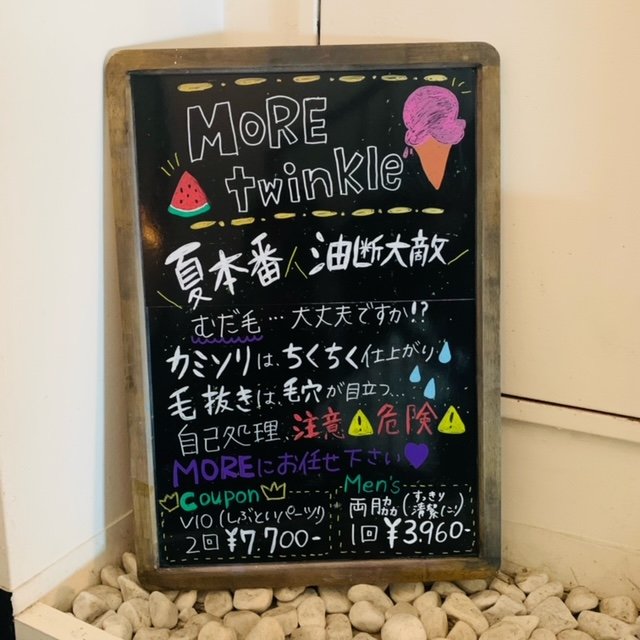 MoRE
twinkle
夏本番 油断大敵
むだ毛…大丈夫ですか!?
カミソリは、ちくちく仕上がり
毛抜きは、毛穴が目立つ…
自己処理、注意 危険
MOREにお任せ下さい♥
Coupon
VIO(しぶといパーツ!)
2回 ¥7.700-
Men's
両脇(すっきり清潔(ニ))
1回 ¥3.960-